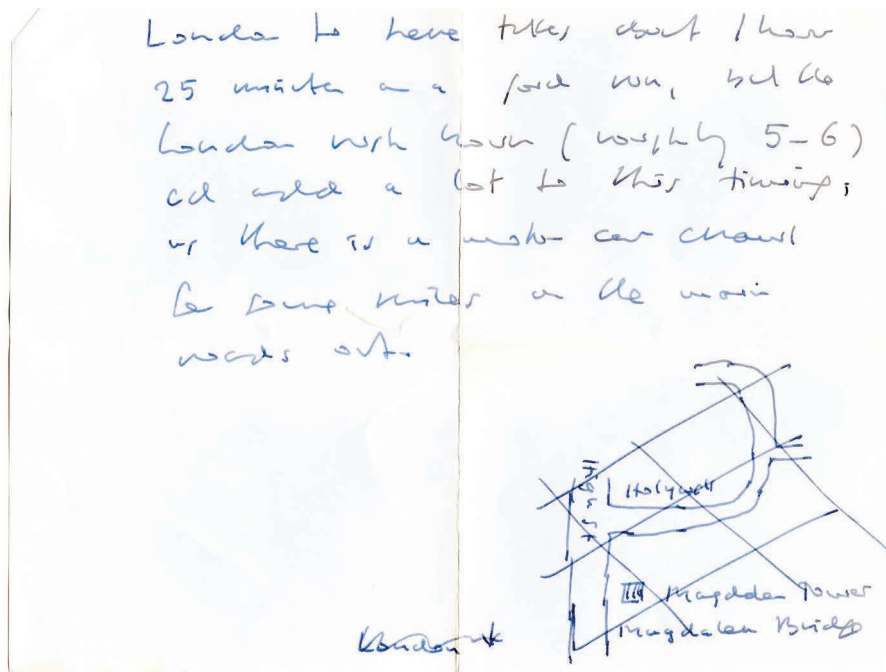 London to here takes about 1 hour
25 minutes on a good run, but the
London rush hour (roughly 5-6)
cd add a lot to this timing,
as there is a motor car crawl
for some miles on the main
roads out.
High St
Holywell
Magdalen Tower
Magdalen Bridge
London